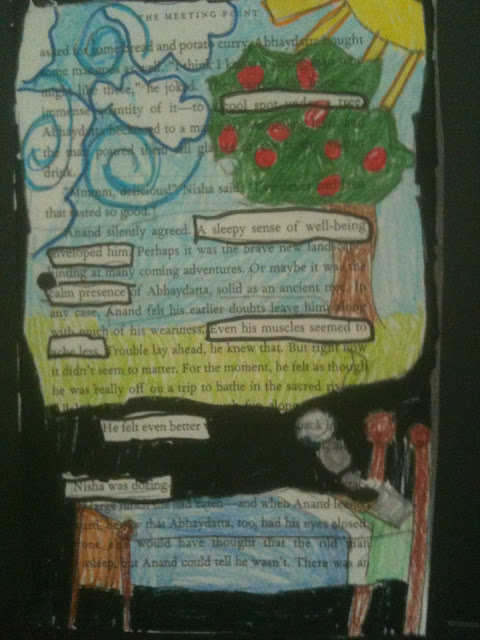 THE MEETING POINT
asked for some bread and potato curry. Abhaydatta bought
some mangoes as well. "I think I
might like these," he joked.
immense quantity of it—to cool spot under a tree
Abhaydatta beckoned to a
the man poured them all
drink.
"Mmmm, delicious!" Nisha said.
that tasted so good."
Anand silently agreed. A sleepy sense of well-being
enveloped him. Perhaps it was the brave new
hinting at many coming adventures. Or maybe it was the
calm presence of Abhaydatta, solid as an ancient tree. In
any case, Anand felt his earlier doubts leave him, along
with much of his weariness. Even his muscles seemed to
ache less. Trouble lay ahead, he knew that. But right now
it didn't seem to matter. For the moment, he felt as though
he was really off on a trip to bathe in the sacred
He felt even better
back
Nisha was dozing
large lunch she had eaten—and when Anand
that Abhaydatta, too, had his eyes closed.
would have thought that the old man
asleep, but Anand could tell he wasn't. There was an